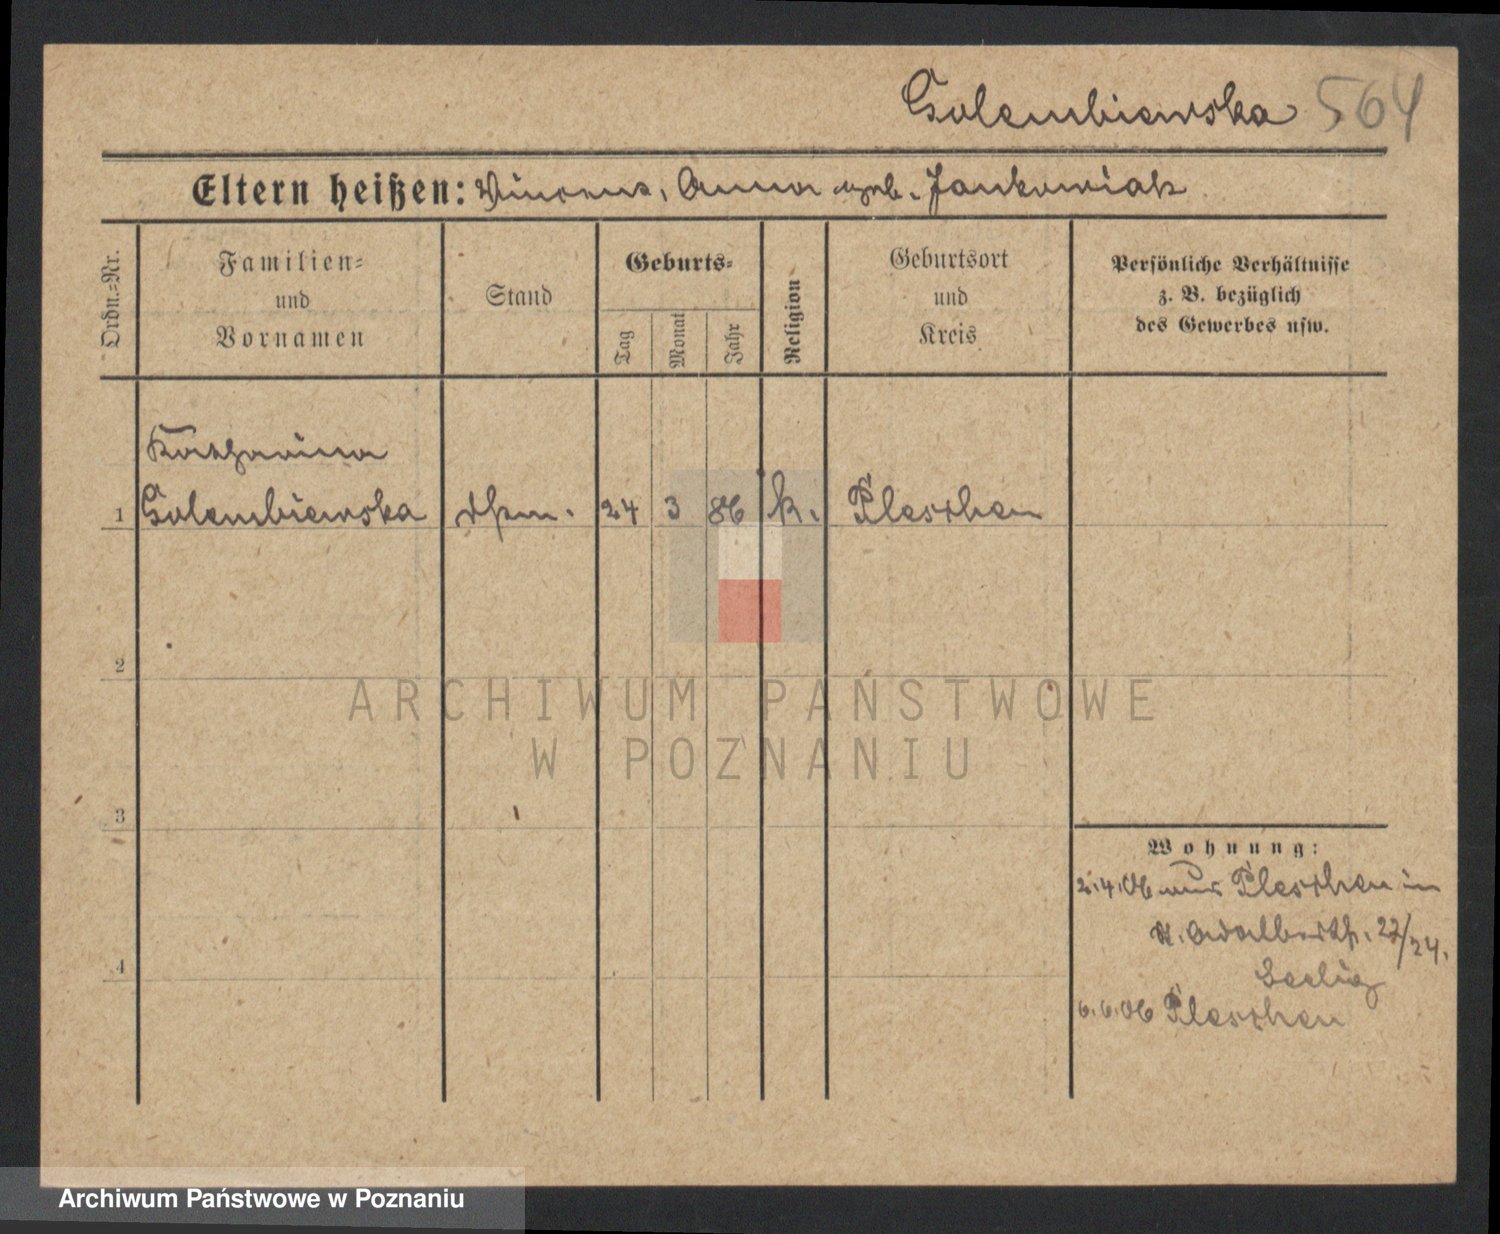 Golembiewska 564
Eltern heißen: Vincens, Anna geb. Jankowiak
Ordn.-Nr.
Familien-
und
Vornamen
Stand
Geburts-
Tag
Monat
Jahr
Religion
Geburtsort
und
Kreis
Persönliche Verhältnisse
z. B. bezüglich
des Gewerbes usw.
Katharina
1 Golembiewska 24 3 86 k. Pleschen
2
ARCHIWUM PAŃSTWOWE
W POZNANIU
3
Wohnung:
2.4.06 aus Pleschen in
St. Adalbertstr. 23/24.
4
Seelig
6.6.06 Pleschen
Archiwum Państwowe w Poznaniu